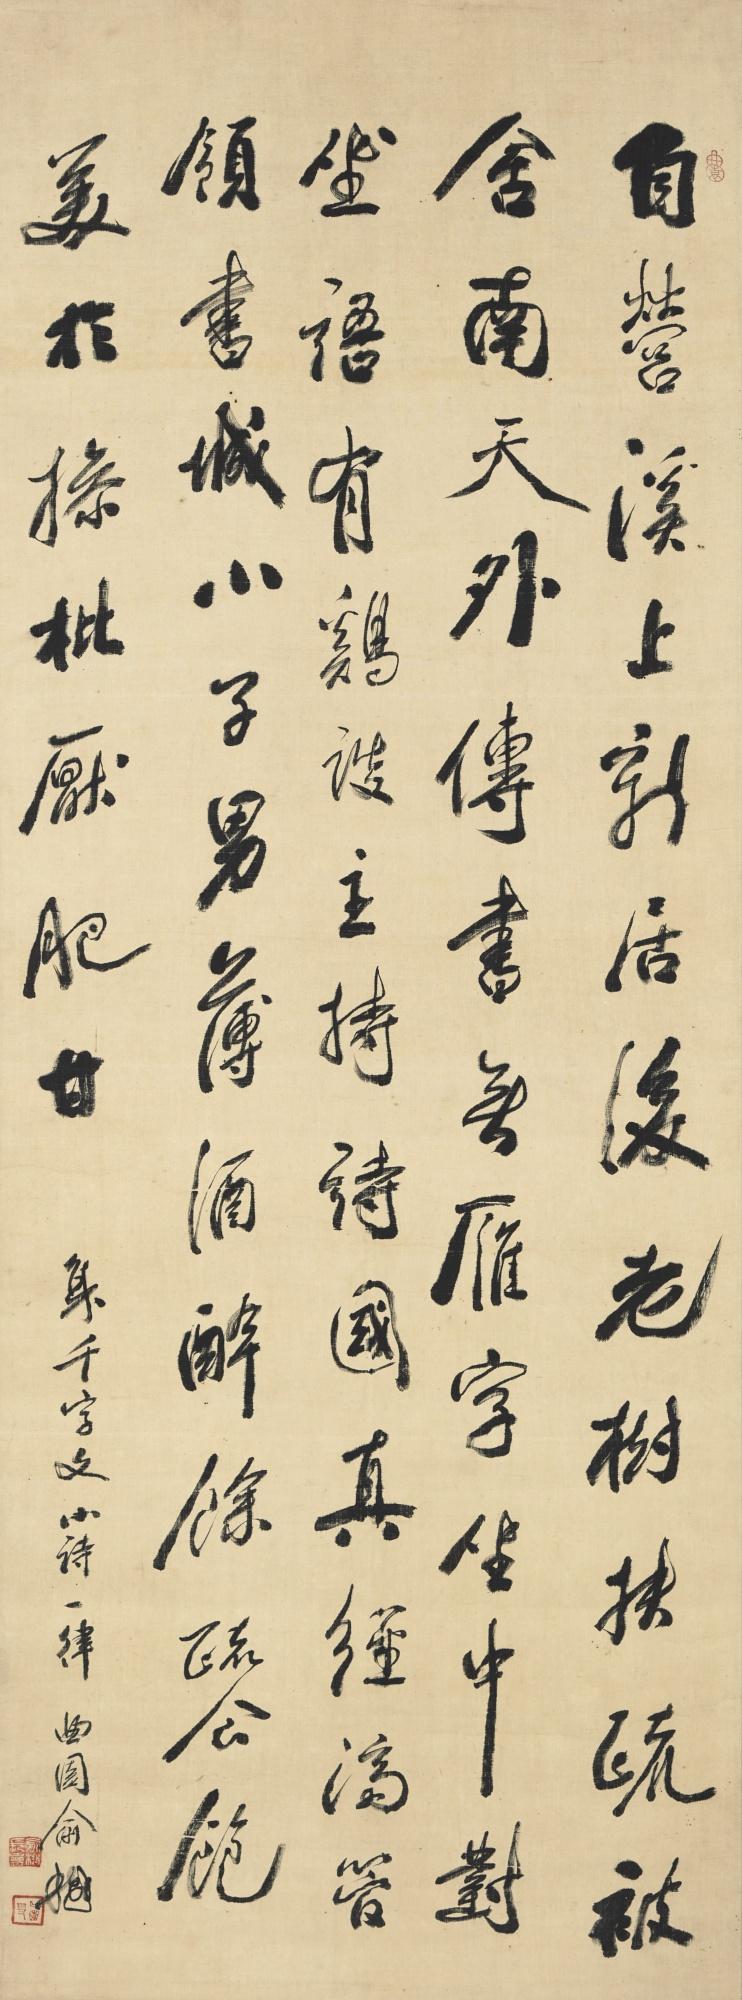 自營溪上新居後老樹扶疏被
舍南天外傳書無雁字坐中對
坐語有鷄談主持詩國真經濟管
領書城小子男薄酒醉餘疏食飽
美於操枇厭肥甘
集千字文小詩一律 曲園俞樾